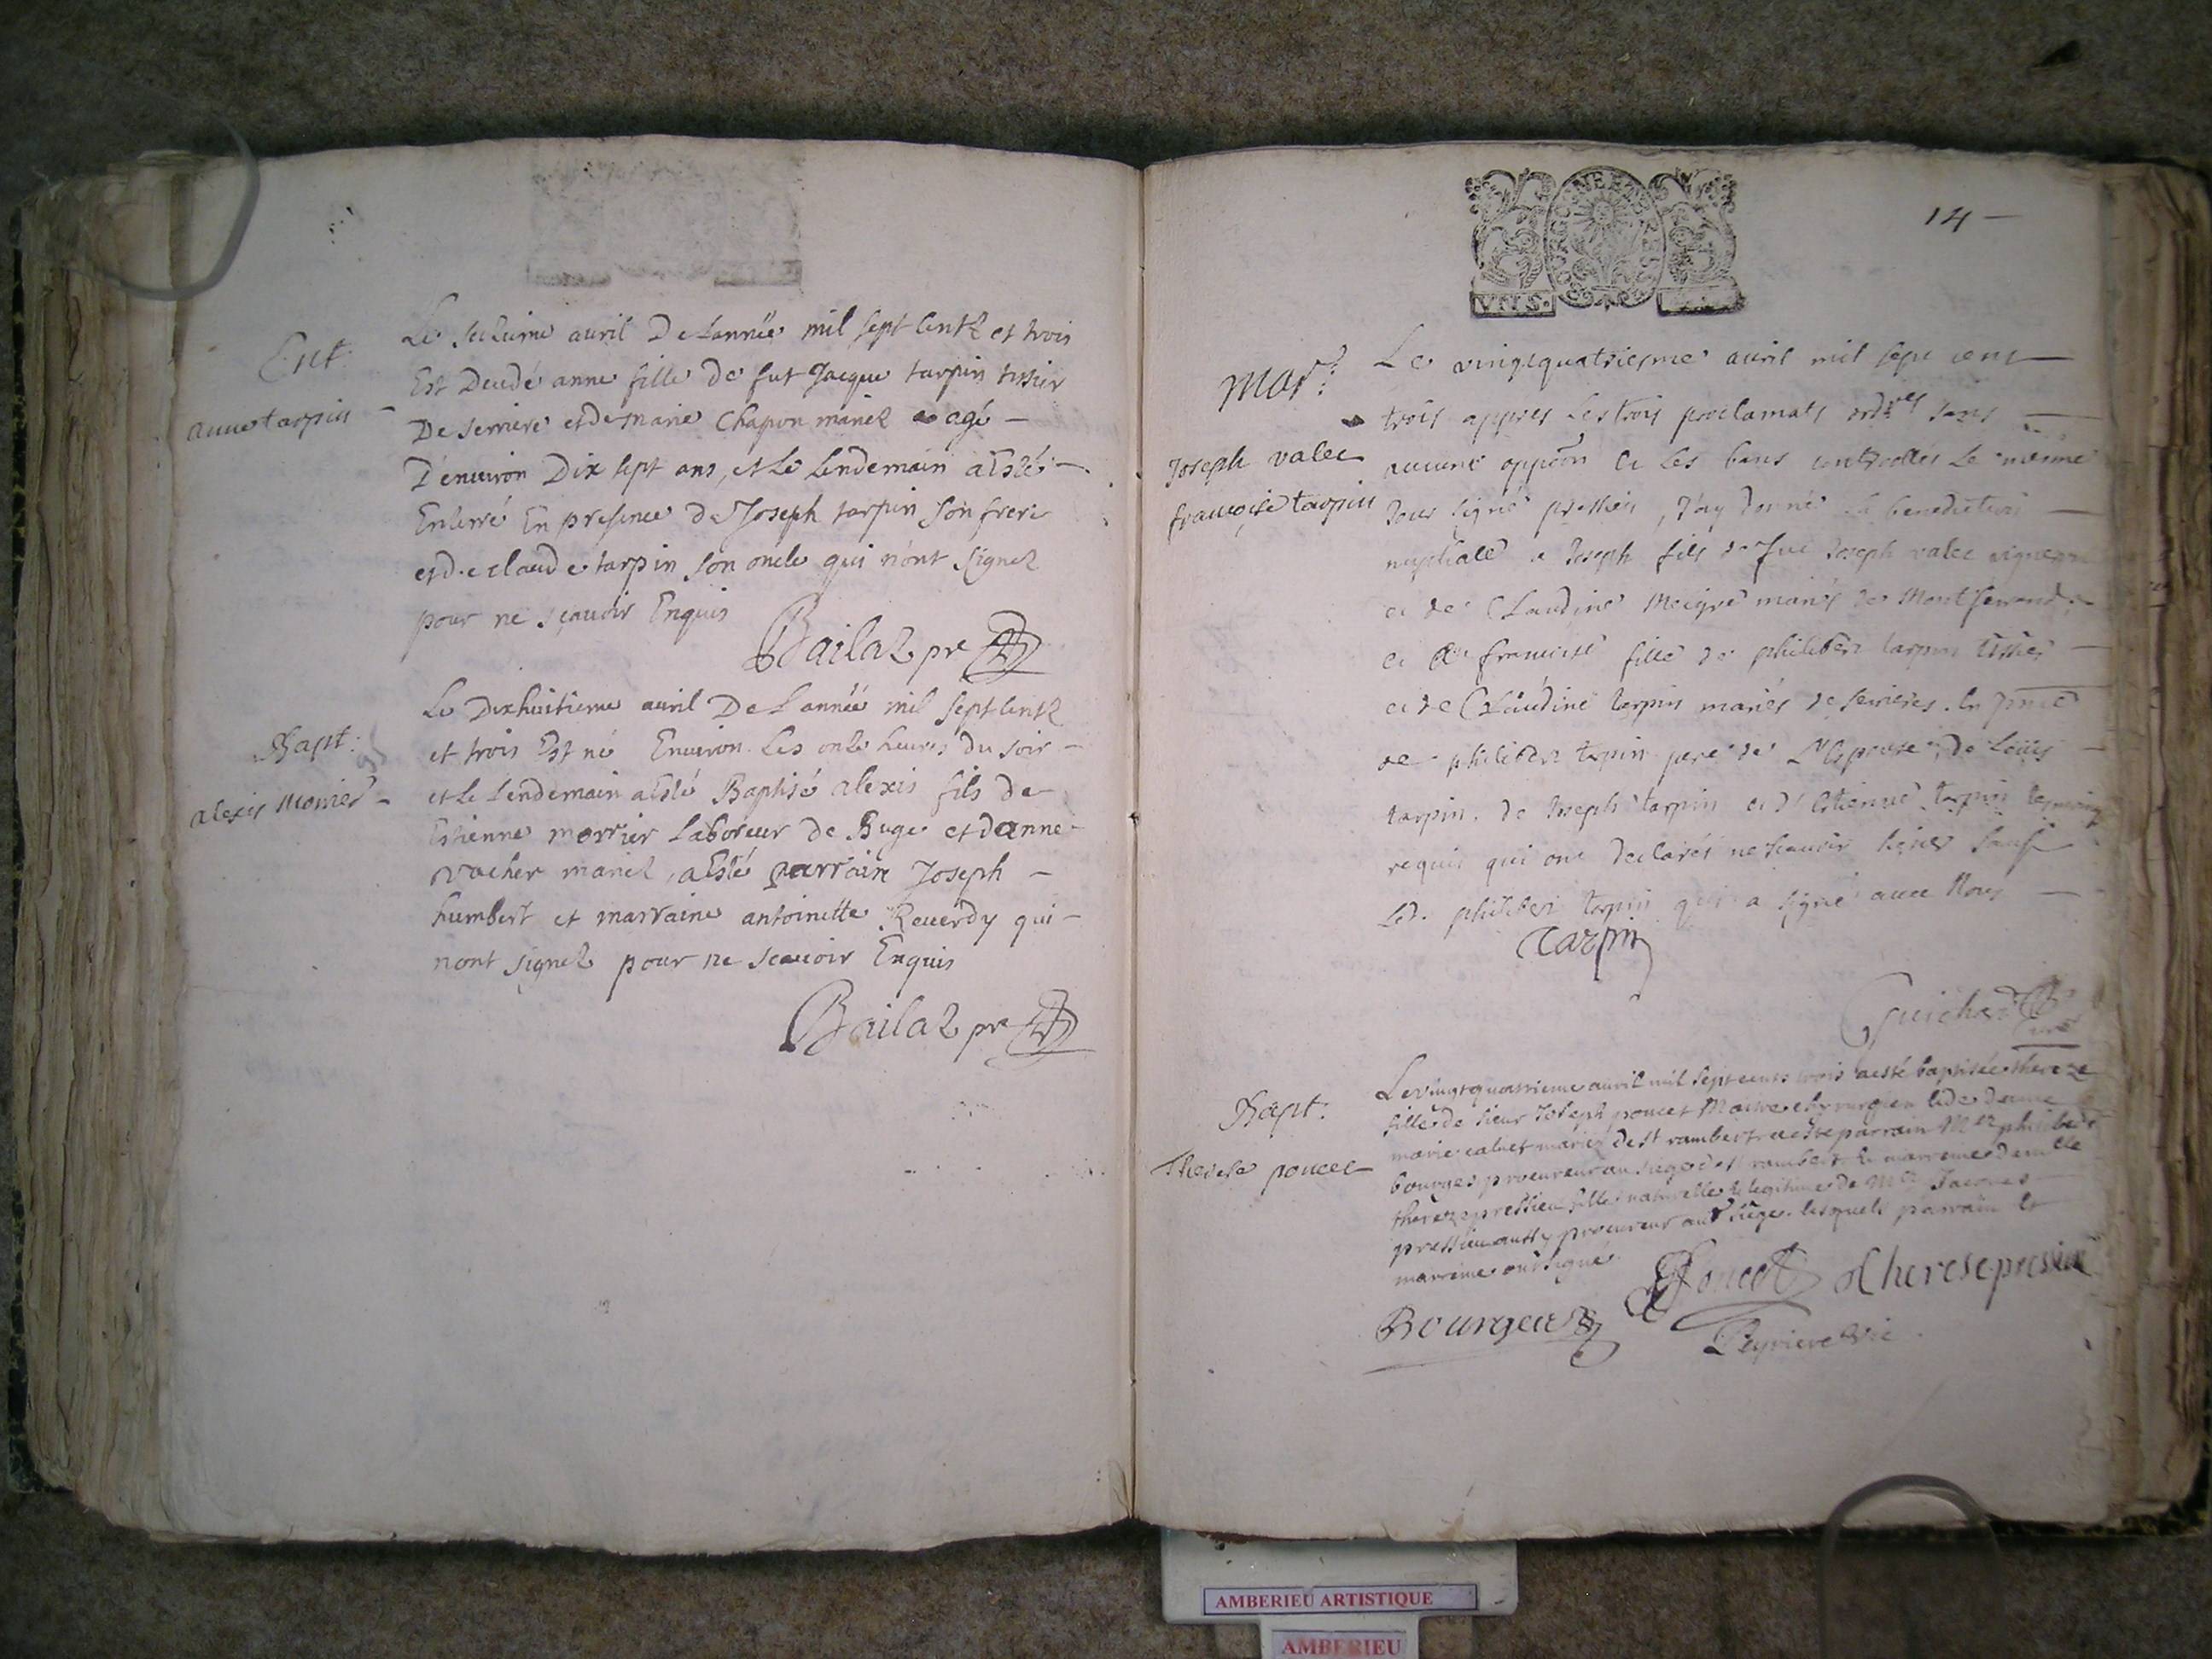 Ent:
anne tarpin
Le seizieme auril De Lannée mil sept Centz et trois
Est Decedé anne fille de fut Jacque tarpin tissier
De serriere et de marie Chapon mariez agé
D'enuiron Dix sept ans, et Le Lendemain a Esté
Enterré En presence De Joseph tarpin son frere
et de claude tarpin son oncle qui n'ont signez
pour ne sçauoir Enquis
Bailaz pre
Bapt:
alexis Morrier
Le Dixhuitieme auril De L'année mil sept Centz
et trois Est né Enuiron Les onze heures du soir
et Le Lendemain a Esté Baptisé alexis fils de
Estienne morrier Laboreur de Buges et d'anne
vacher mariez, a Esté parrain Joseph
humbert et marraine antoinette Reuerdy qui
n'ont signez pour ne scauoir Enquis
Bailaz pre
14
VNS.
Mar:
Joseph valec
françoise tarpin
Le vingtquatriesme auril mil sept cent
trois appres Les trois proclamats ordres sans
aucune opp̃on et Les bans controllés Le mesme
Jour signé pressieu, J'ay donné la benediction
nuptiale a Joseph fils de fut Joseph valec vigneron
et de Claudine Meigre mariés de Montferrand
et a françoise fille de philibert tarpin tissier
et de Claudine tarpin mariés de serrieres. En pnce
de philibert tarpin pere de L'espouse, de Loüis
tarpin, de Joseph tarpin et d'Estienne tarpin tesmoings
requis qui ont declarés ne scauoir signer sauf
Led. philibert tarpin qui a signé auec Nous
tarpin
Guichard
Curé
Bapt:
Therese poncet
Le vingt quatrieme auril mil sept cents trois a esté baptisée thereze
fille de sieur Joseph poncet Maitre chyrurgien & de deme
marie caluet mariés de st rambert a esté parrain Mtre philibert
bourges procureur au siege de st rambert & marreine demlle
thereze pressieu fille naturelle & legitime de Mtre Jacques
pressieu aussy procureur aud siege. lesquels parrain et
marreine ont signé.
Poncet
Therese presieu
Bourgeu
Peyriere Vic.
AMBERIEU ARTISTIQUE
AMBERIEU